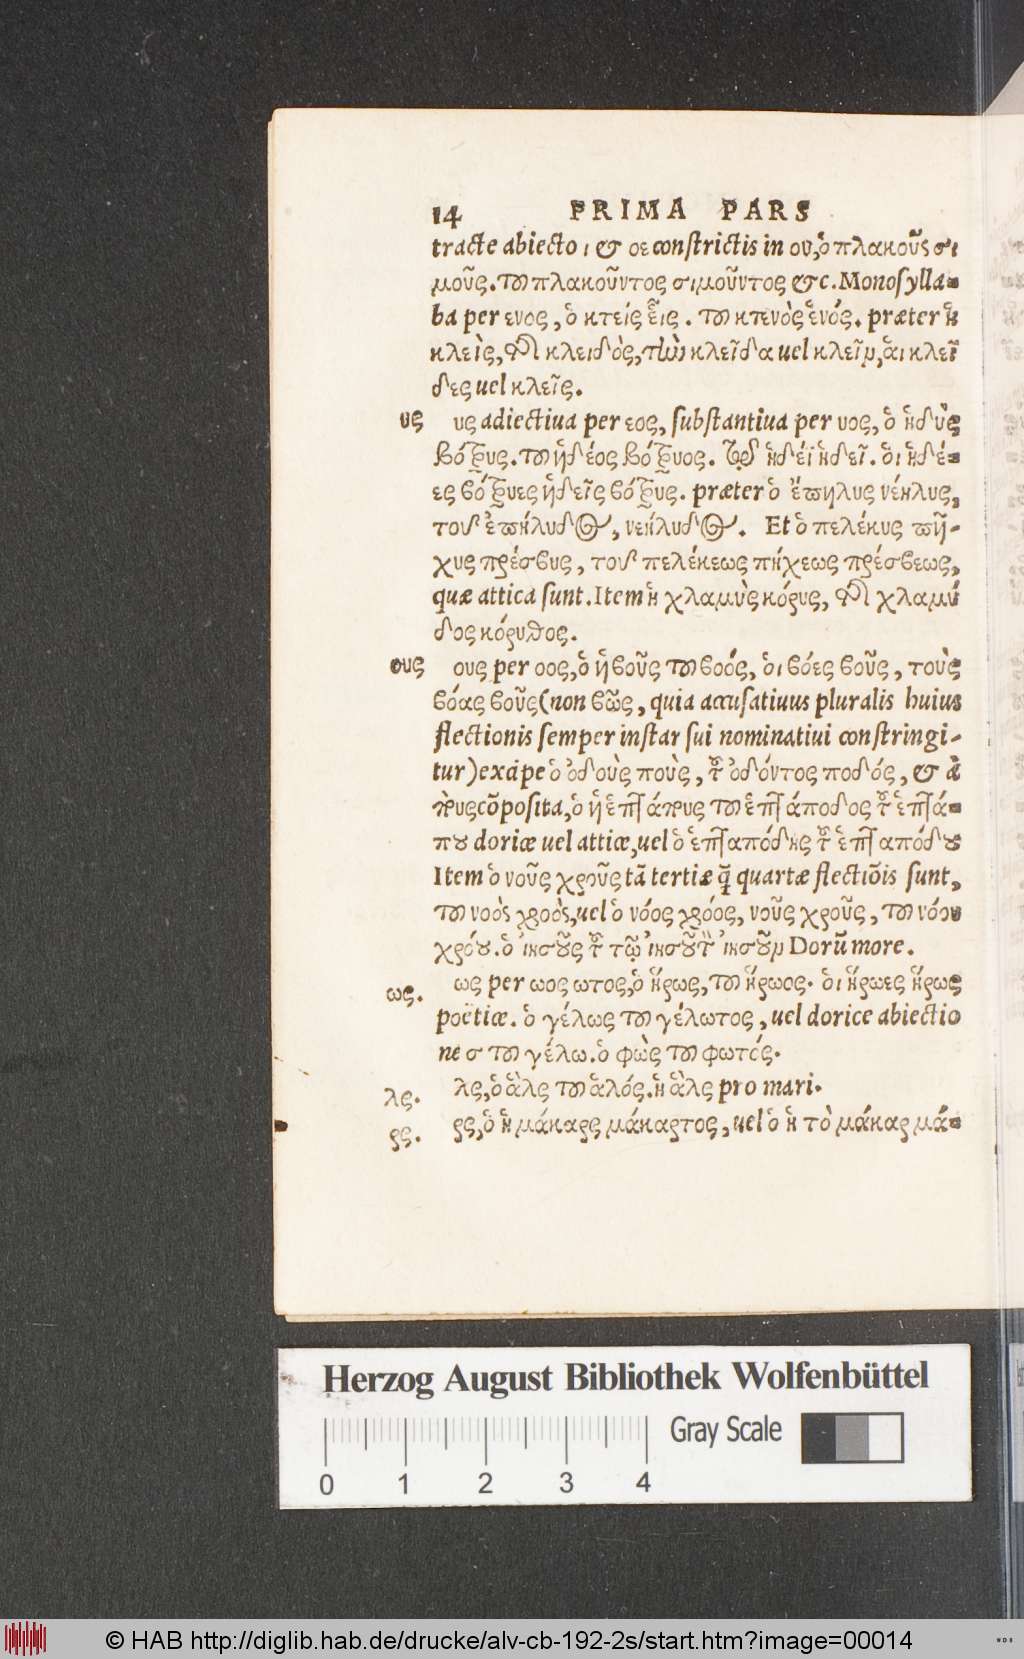 14 PRIMA PARS
tracte abiecto ι & οε constrictis in ου, ὁ πλακοῦς σι
μοῦς. τοῦ πλακοῦντος σιμοῦντος &c. Monosylla-
ba per ενος, ὁ κτείς εἷς. τοῦ κτενὸς ἑνός. præter ἡ
κλεὶς, τῆς κλειδὸς, τὴν κλεῖδα uel κλεῖν, αἱ κλεῖ
δες uel κλεῖς.
υς υς adiectiua per εος, substantiua per υος, ὁ ἡδὺς
βότρυς. τοῦ ἡδέος βότρυος. τῷ ἡδέϊ ἡδεῖ. οἱ ἡδέ-
ες βότρυες ἡδεῖς βότρυς. præter ὁ ἔπηλυς νέηλυς,
τοῦ ἐπήλυδος, νεήλυδος. Et ὁ πελέκυς πῆ-
χυς πρέσβυς, τοῦ πελέκεως πήχεως πρέσβεως,
quæ attica sunt. Item ἡ χλαμὺς κόρυς, τῆς χλαμύ
δος κόρυθος.
ους ους per οος, ὁ ἡ βοῦς τοῦ βοός, οἱ βόες βοῦς, τοὺς
βόας βοῦς (non βῶς, quia accusatiuus pluralis huius
flectionis semper instar sui nominatiui constringi-
tur) excipe ὁ ὀδοὺς ποὺς, τοῦ ὀδόντος ποδός, & ἀ
πους cõposita, ὁ ἡ ἑπτάπους τοῦ ἑπτάποδος τοῦ ἑπτά-
που doricæ uel atticæ, uel ὁ ἑπταπόδης τοῦ ἑπταπόδου
Item ὁ νοῦς χροῦς tã tertiæ q̃ quartæ flectiõis sunt,
τοῦ νοὸς χροὸς, uel ὁ νόος χρόος, νοῦς χροῦς, τοῦ νόου
χρόου. ὁ ἰησοῦς τοῦ τῷ ἰησοῦ τὸν ἰησοῦν Dorũ more.
ως. ως per ωος ωτος, ὁ ἥρως, τοῦ ἥρωος. οἱ ἥρωες ἥρως
poëticæ. ὁ γέλως τοῦ γέλωτος, uel dorice abiectio
ne σ τοῦ γέλω. ὁ φὼς τοῦ φωτός.
λς. λς, ὁ ἃλς τοῦ ἁλός. ἡ ἃλς pro mari.
ρς. ρς, ὁ ἡ μάκαρς μάκαρτος, uel ὁ ἡ τὸ μάκαρ μά-
Herzog August Bibliothek Wolfenbüttel
Gray Scale
0 1 2 3 4
© HAB http://diglib.hab.de/drucke/alv-cb-192-2s/start.htm?image=00014